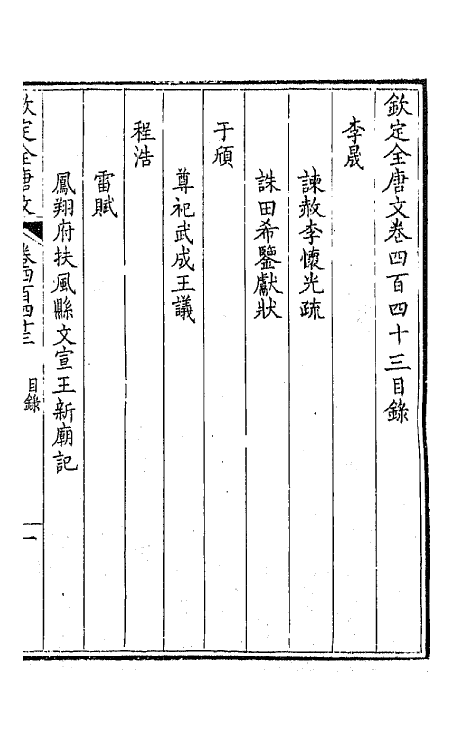 欽定全唐文卷四百四十三目錄
李晟
諫赦李懷光疏
誅田希鑒獻狀
于頎
尊祀武成王議
程浩
雷賦
鳳翔府扶風縣文宣王新廟記
欽定全唐文 卷四百四十三 目錄 一